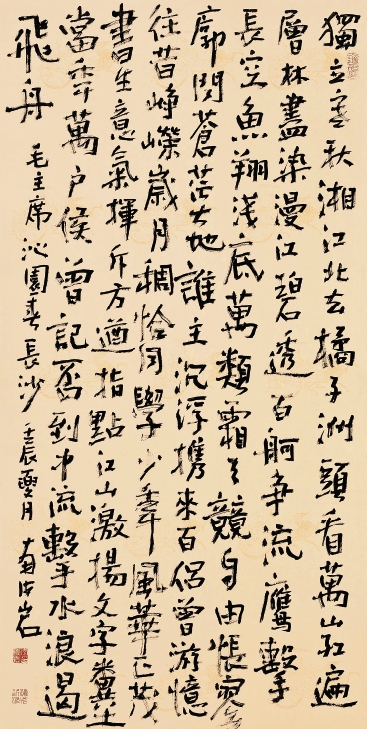 獨立寒秋湘江北去橘子洲頭看萬山紅遍
層林盡染漫江碧透百舸爭流鷹擊
長空魚翔淺底萬類霜天競自由悵寥
廓問蒼茫大地誰主沉浮携來百侶曾游憶
往昔崢嶸歲月稠恰同學少年風華正茂
書生意氣揮斥方遒指點江山激揚文字糞土
當年萬戶侯曾記否到中流擊水浪遏
飛舟 毛主席沁園春長沙 壬辰夏月 南海岩